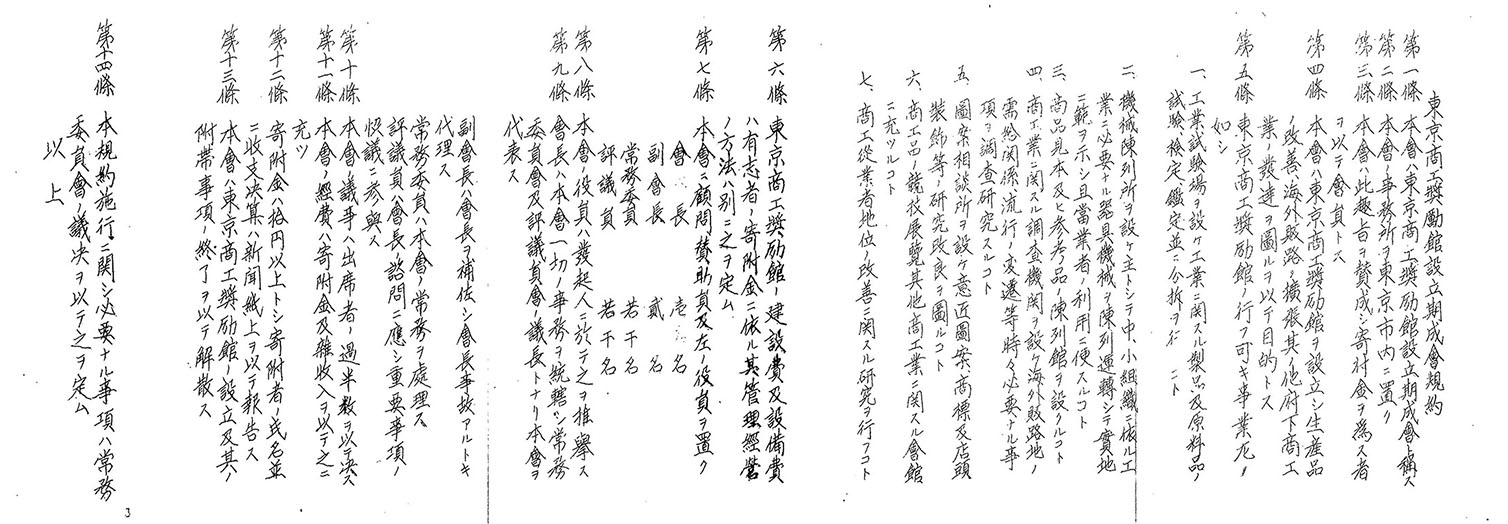 東京商工奨励館設立期成會規約
第一條 本會ハ東京商工奨励館設立期成會ト稱ス
第二條 本會ノ事務所ヲ東京市内ニ置ク
第三條 本會ハ此趣旨ヲ賛成シ寄附金ヲ爲ス者
ヲ以テ會員トス
第四條 本會ハ東京商工奨励館ヲ設立シ生産品
ノ改善海外販路ノ擴張其ノ他府下商工
業ノ發達ヲ圖ルヲ以テ目的トス
第五條 東京商工奨励館ノ行フ可キ事業凡ノ
如シ
一、工業試驗場ヲ設ケ工業ニ関スル製品及原料品ノ
試驗檢定鑑定並ニ分拆ヲ行 コト
二、機械陳列所ヲ設ケ主トシテ中、小組織ニ依ル工
業ニ必要ナル器具機械ヲ陳列運轉シテ實地
ニ範ヲ示シ且當業者ノ利用ニ便スルコト
三、商品見本及ヒ参考品ノ陳列館ヲ設クルコト
四、商工業ニ関スル調査機関ヲ設ケ海外販路地ノ
需給関係、流行ノ変遷等時々必要ナル事
項ヲ調査研究スルコト
五、圖案相談所ヲ設ケ意匠圖案、商標及店頭
裝飾等ノ研究改良ヲ圖ルコト
六、商工品ノ競技展覽其他商工業ニ関スル會館
ニ充ツルコト
七、商工從業者地位ノ改善ニ関スル研究ヲ行フコト
第六條 東京商工奨励館ノ建設費及設備費
ハ有志者ノ寄附金ニ依ル其管理經營
ノ方法ハ別ニ之ヲ定ム
第七條 本會ニ顧問賛助員及左ノ役員ヲ置ク
會長 壱名
副會長 貳名
常務委員 若干名
評議員 若干名
第八條 本會ノ役員ハ發起人ニ於テ之ヲ推擧ス
第九條 會長ハ本會一切ノ事務ヲ統轄シ常務
委員會及評議員會ノ議長トナリ本會ヲ
代表ス
副會長ハ會長ヲ補佐シ會長事故アルトキ
代理ス
常務委員ハ本會ノ常務ヲ處理ス
評議員ハ會長ノ諮問ニ應シ重要事項ノ
恊議ニ参與ス
第十條 本會ノ議事ハ出席者ノ過半数ヲ以テ決ス
第十一條 本會ノ經費ハ寄附金及雜收入ヲ以テ之ニ
充ツ
第十二條 寄附金ハ拾円以上トシ寄附者ノ氏名並
ニ收支決算ハ新聞紙上ヲ以テ報告ス
第十三條 本會ハ東京商工奨励館ノ設立及其ノ
附帶事項ノ終了ヲ以テ解散ス
第十四條 本規約施行ニ関シ必要ナル事項ハ常務
委員會ノ議決ヲ以テ之ヲ定ム
以上
3